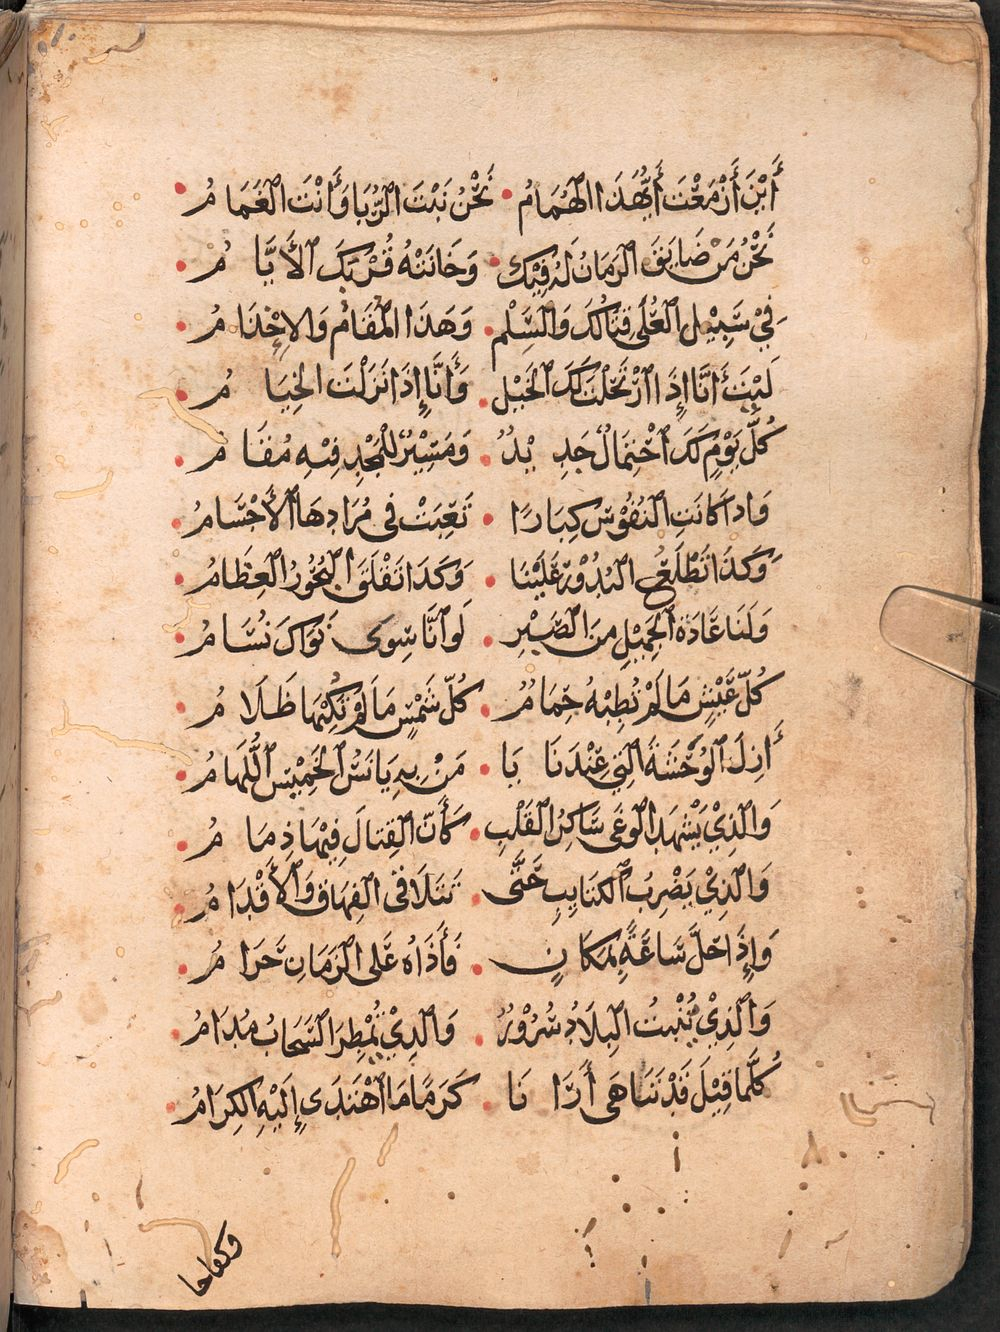 أَيْنَ أَزْمَعْتَ أَيُّهَذَا الهُمَامُ • نَحْنُ نَبْتُ الرُّبَا وَأَنْتَ الغَمَامُ •
نَحْنُ مَن ضَايَقَ الزمَانُ لَهُ فِيكَ • وَخَانَتْهُ قُرْبَكَ الأَيَّامُ •
فِي سَبِيْلِ العُلَى قِتَالُكَ وَالسِّلْم • وَهَذَا المُقَامُ وَالاِجْذَامُ •
لَيْتَ أَنَّا إِذَا ارْتَحَلْتَ لَكَ الخَيْل • وَأَنَّا إِذَا نَزَلْتَ الخِيَامُ •
كُلَّ يَوْمٍ لَكَ احْتِمَالٌ جَدِيْدُ • وَمَسِيْرٌ لِلمَجْدِ فِيْهِ مُقَامُ •
وَاذَا كَانَتِ النُفُوْسُ كِبَارًا • تَعِبَتْ فى مُرَادِهَا الأَجْسَامُ •
وَكَذَا تَطْلَعُ البُدُوْرُ عَلَيْنَا • وَكَذَا تَقْلَقُ البُحُوْرُ العِظَامُ •
وَلَنَا عَادَة الجَمِيْلِ مِنَ الصَّبْرِ • لَوَ انَّا سِوى نَوَاكَ نُسَامُ •
كُلُّ عَيْشٍ مَا لَمْ تُطِبْهُ حِمَامُ • كُلُّ شَمْسٍ مَا لَمْ تَكُنْهَا ظَلَامُ •
أَزِلِ الوَحْشَةَ الَّتِي عِنْدَنَا يَا • مَنْ بِهِ يَانَسُ الخَمِيْسُ اللُّهَامُ •
وَالَّذِيْ يَشْهَدُ الوَغَى سَاكِنَ القَلْبِ • كَأَنَّ القِتَالَ فِيْهَا ذِمَامُ •
وَالَّذِيْ يَضْرِبُ الكَتَايِبَ حَتَّى • تَتَلَاقى الفِهَاقُ وَالأَقْدَامُ •
وَإِذَا حَلَّ سَاعَةً بِمَكَانٍ • فَأَذَاهُ عَلَى الزَمَانِ حَرَامُ •
وَالَّذِيْ تُنْبِتُ البِلَادُ سُرُوْرُ • وَالَّذِيْ تُمْطِرُ السَّحَابُ مُدَامُ •
كُلَّمَا قِيْلَ قَدْ تَنَاهَى أَرَانَا • كَرَمًا مَا اهْتَدَى إِلَيْهِ الكِرَامُ •
وكفاحا